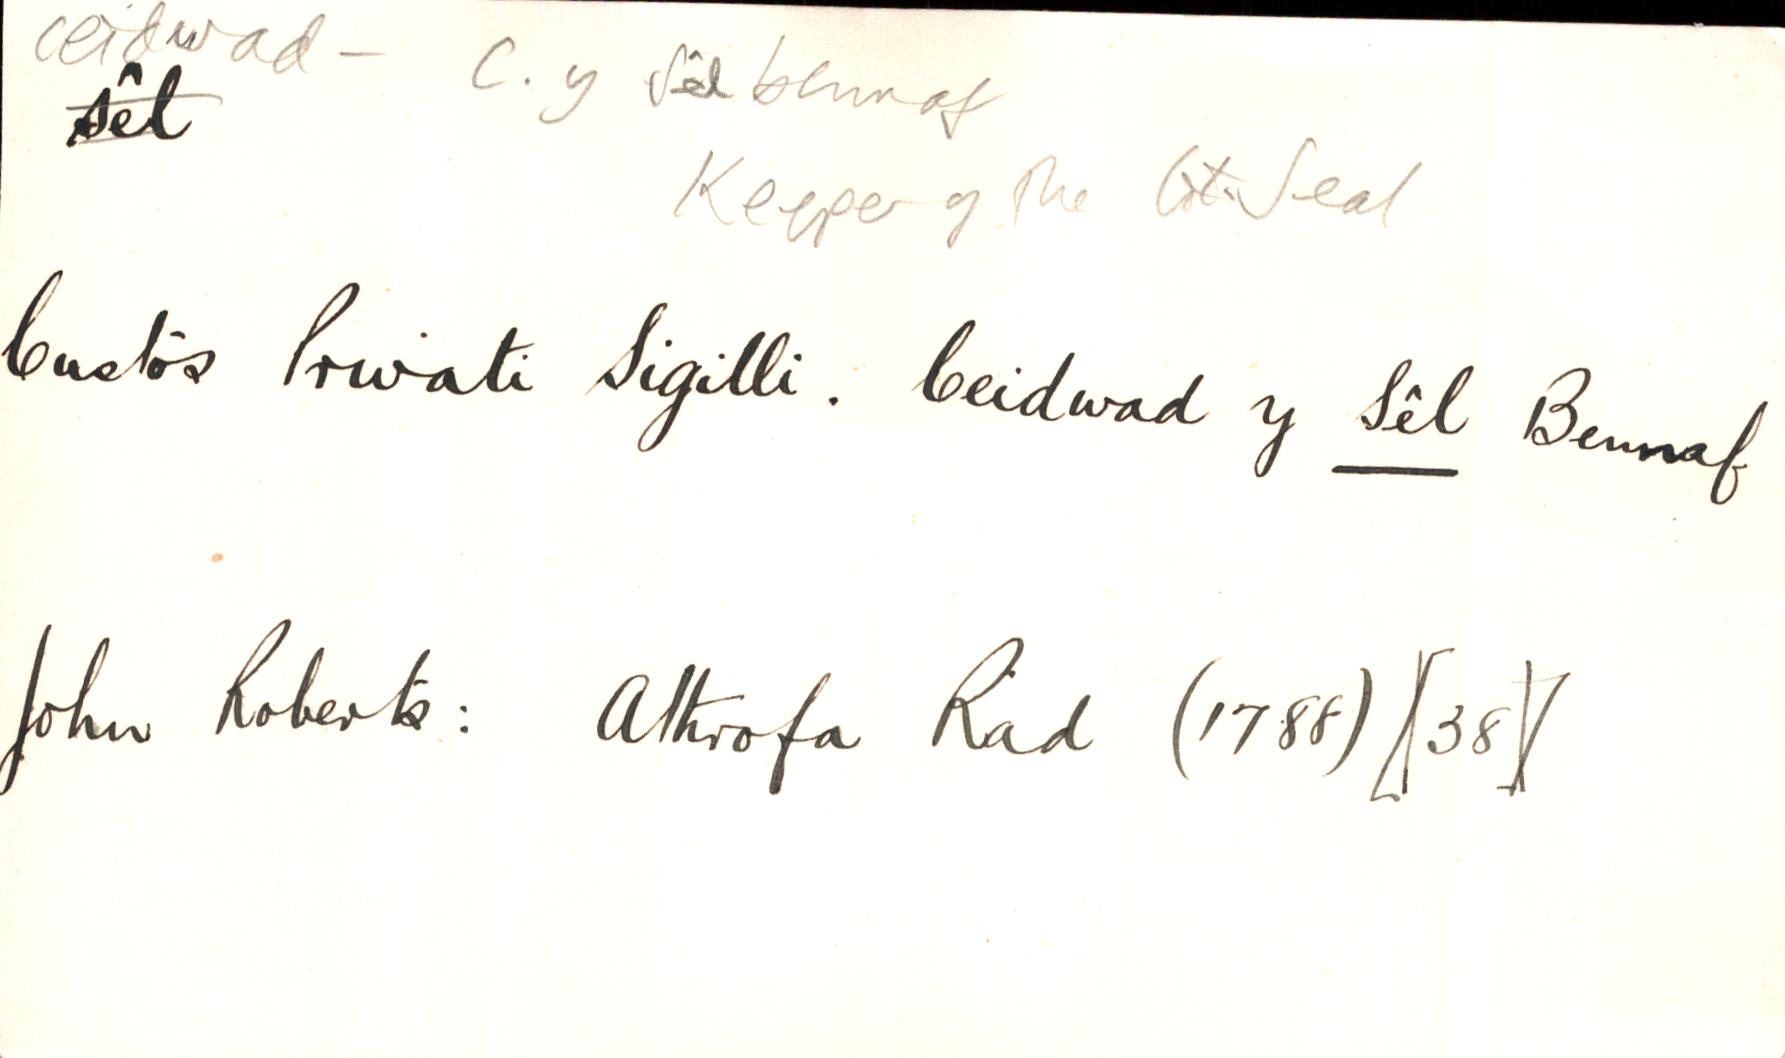 ceidwad – C. y Sêl bennaf
sêl
Keeper of the Gt. Seal
Custos Privati Sigilli. Ceidwad y Sêl Bennaf
John Roberts: Athrofa Rad (1788) [38]